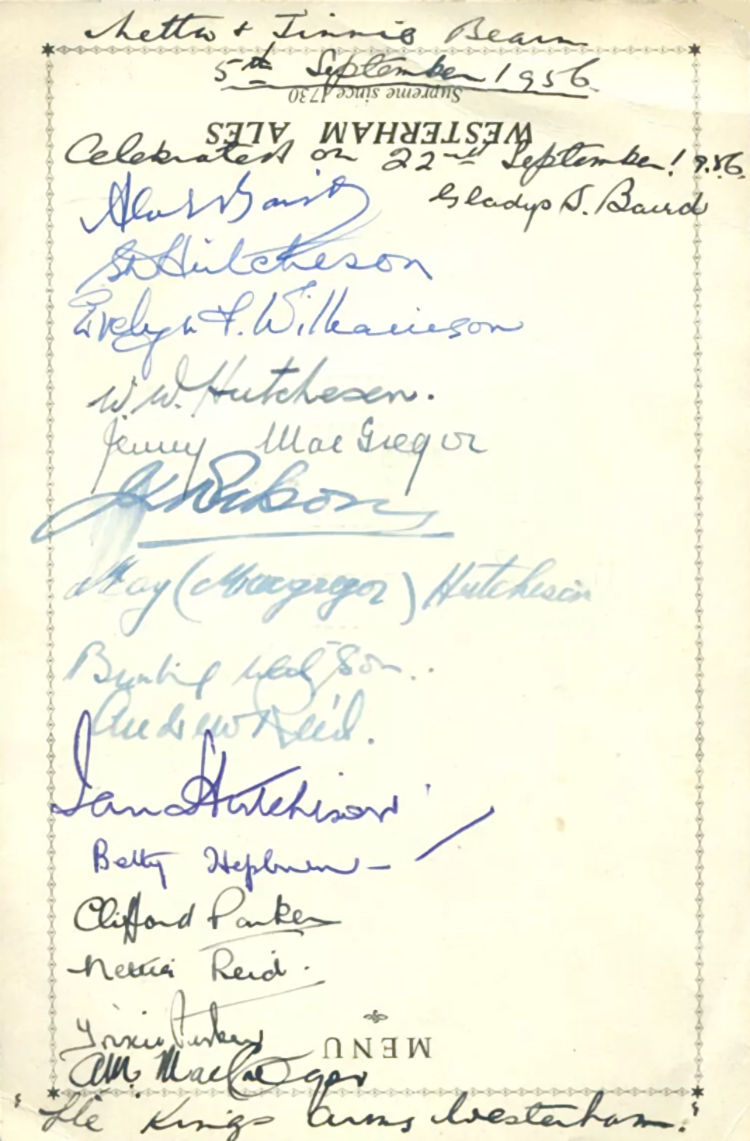 Netta & Jimmie Bearn
5th September 1956
Supreme since 1730
WESTERHAM ALES
Celebrated on 22nd September 1956.
Gladys S. Baird
Hutcheson
Evelyn F. Williamson
W. W. Hutcheson.
Jenny MacGregor
May (Macgregor) Hutcheson
Watson..
Andrew Reid.
Ian Hutchison
Betty Hepburn
Clifford Parker
Nettie Reid.
Parker
A.M. MacGregor
MENU
The Kings Arms Westerham.